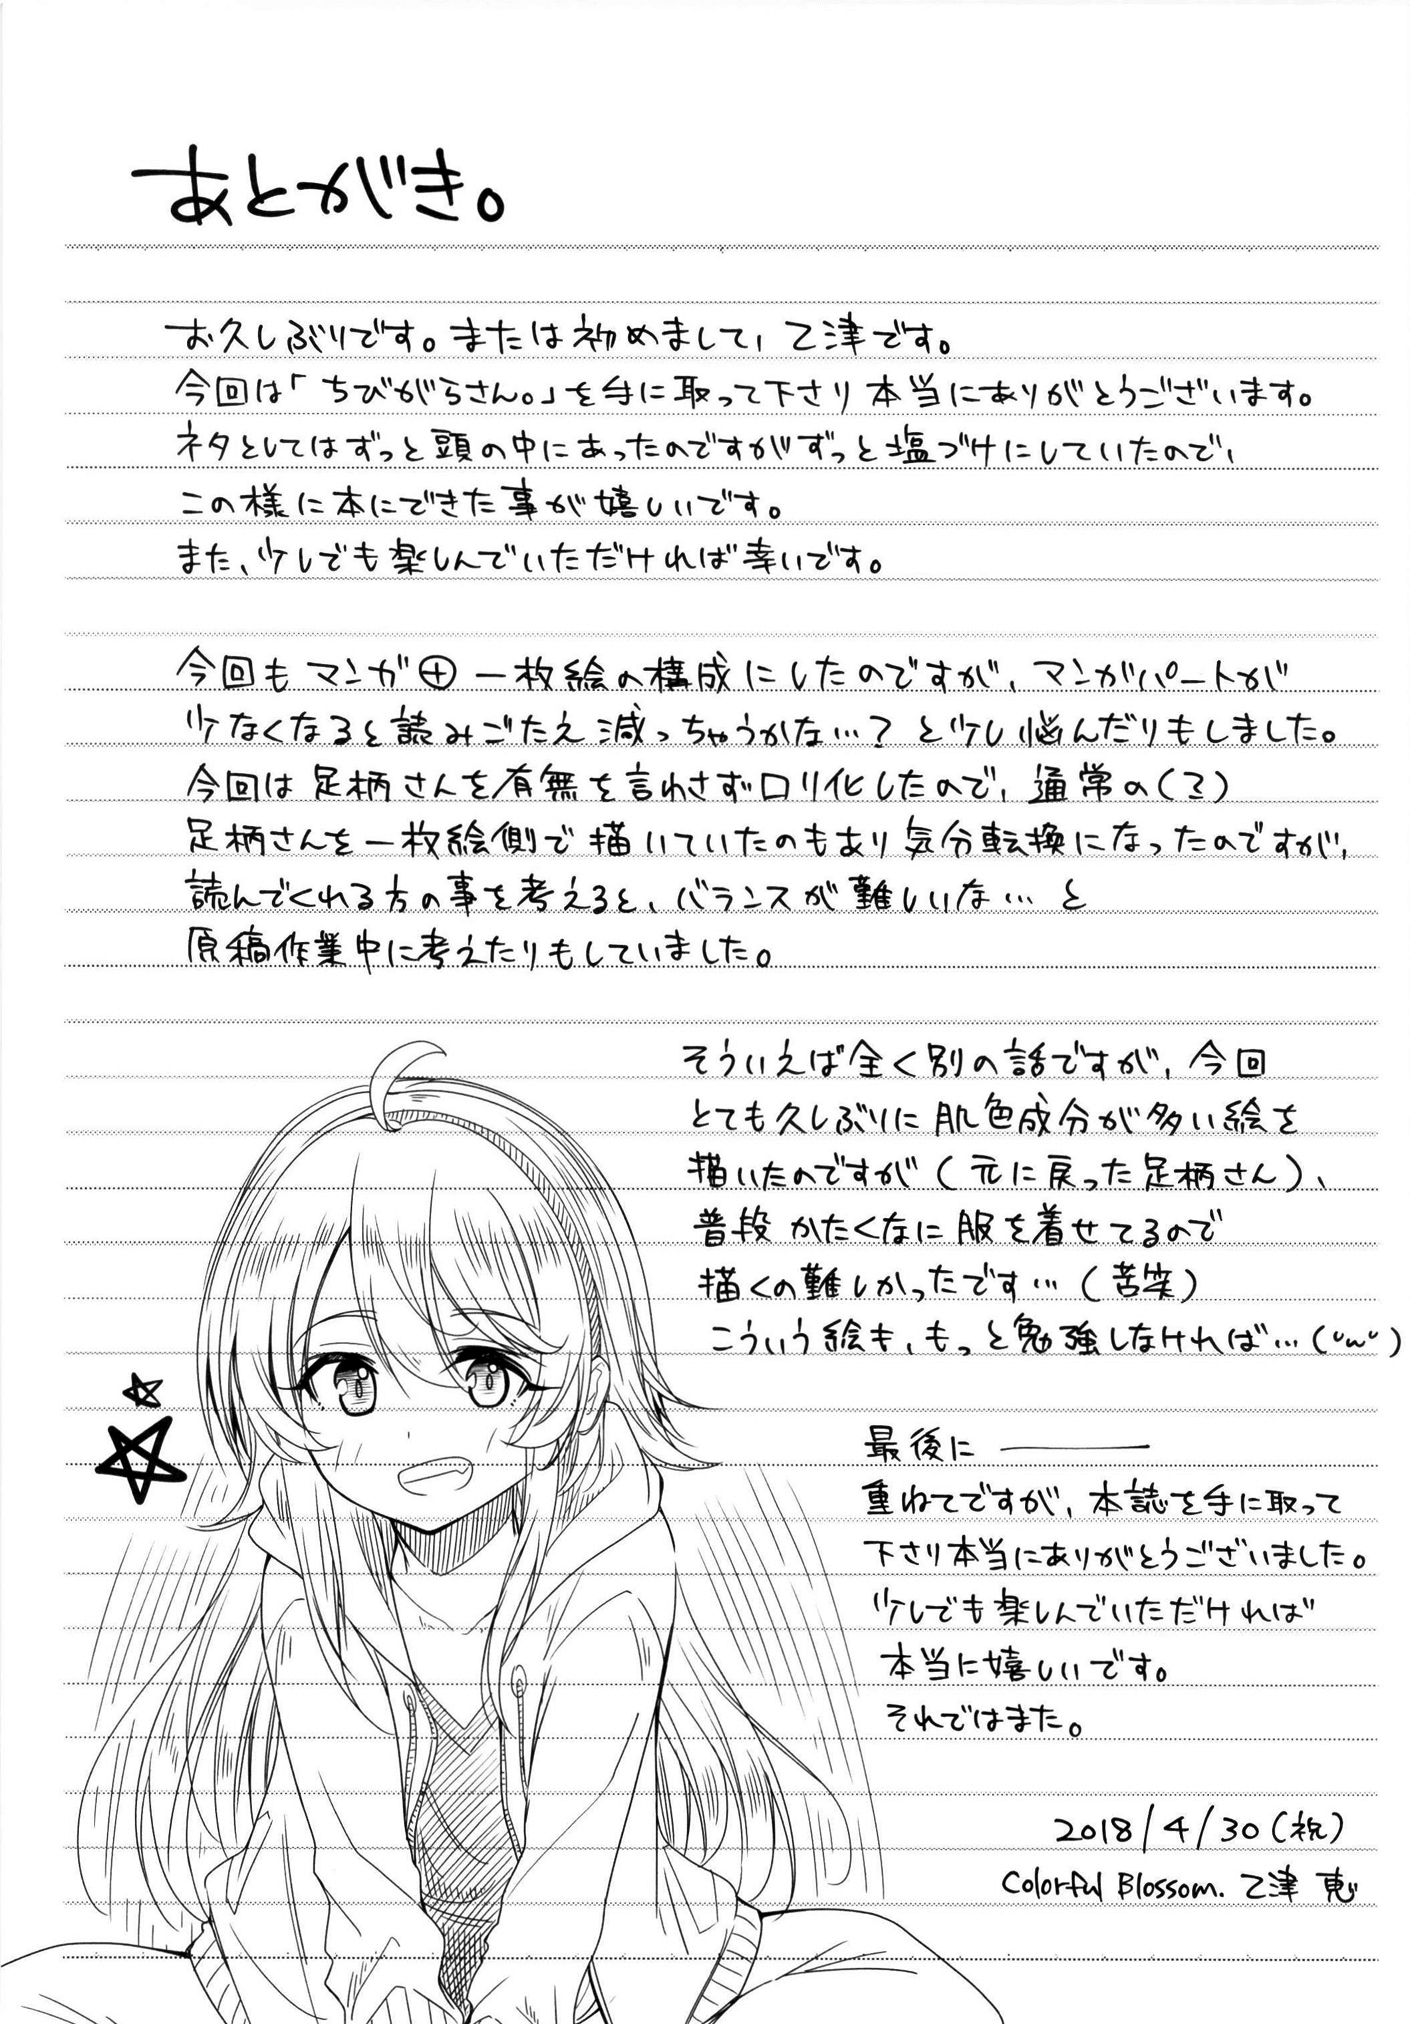 あとがき。
お久しぶりです。または初めまして、乙津です。
今回は「ちびがらさん。」を手に取って下さり本当にありがとうございます。
ネタとしてはずっと頭の中にあったのですがずっと塩づけにしていたので、
この様に本にできた事が嬉しいです。
また、少しでも楽しんでいただければ幸いです。
今回もマンガ⊕一枚絵の構成にしたのですが、マンガパートが
少なくなると読みごたえ減っちゃうかな…？と少し悩んだりもしました。
今回は足柄さんを有無を言わさずロリ化したので、通常の(?)
足柄さんを一枚絵側で描いていたのもあり気分転換になったのですが、
読んでくれる方の事を考えると、バランスが難しいな…と
原稿作業中に考えたりもしていました。
そういえば全く別の話ですが、今回
とても久しぶりに肌色成分が多い絵を
描いたのですが(元に戻った足柄さん)、
普段かたくなに服を着せてるので
描くの難しかったです…(苦笑)
こういう絵も、もっと勉強しなければ…('ω')
最後に――
重ねてですが、本誌を手に取って
下さり本当にありがとうございました。
少しでも楽しんでいただければ
本当に嬉しいです。
それではまた。
2018/4/30(祝)
Colorful Blossom. 乙津 恵